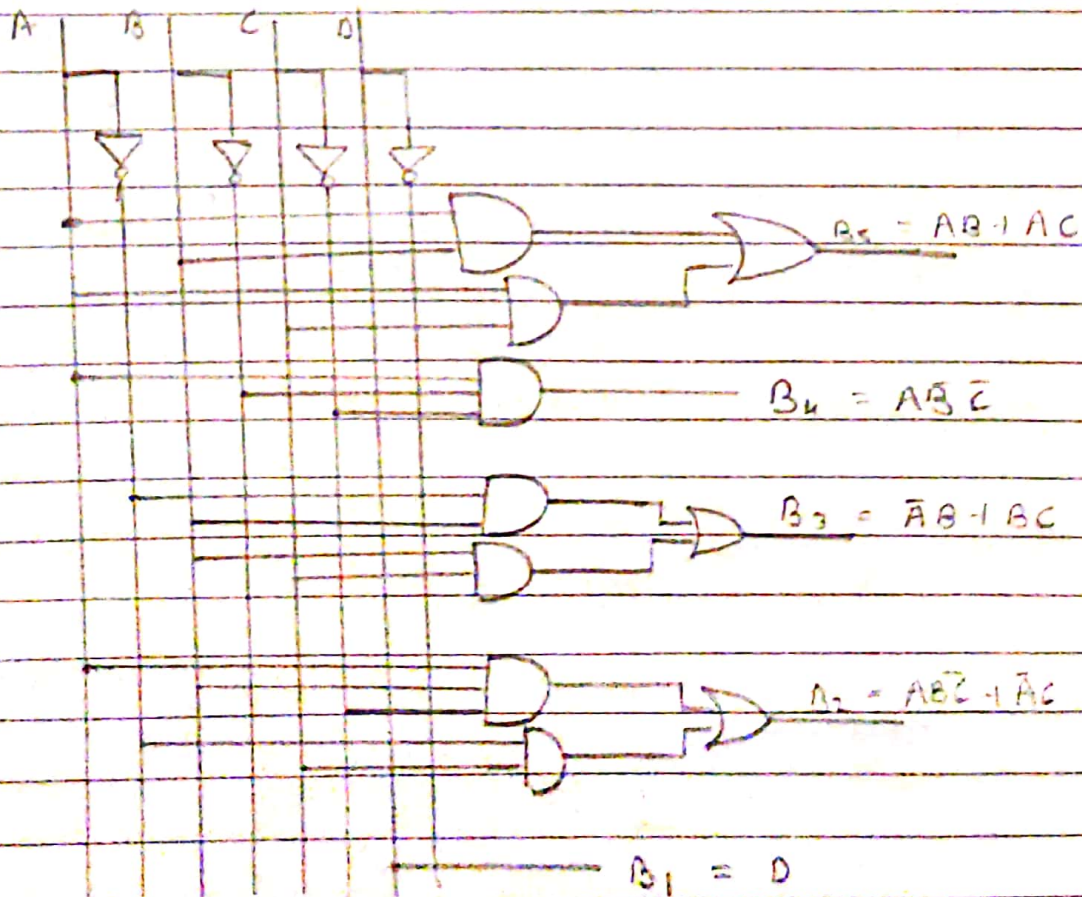 A B C D
B₅ = AB + AC
B₄ = AB̄C̄
B₃ = ĀB + BC
B₂ = ABC̄ + ĀC
B₁ = D